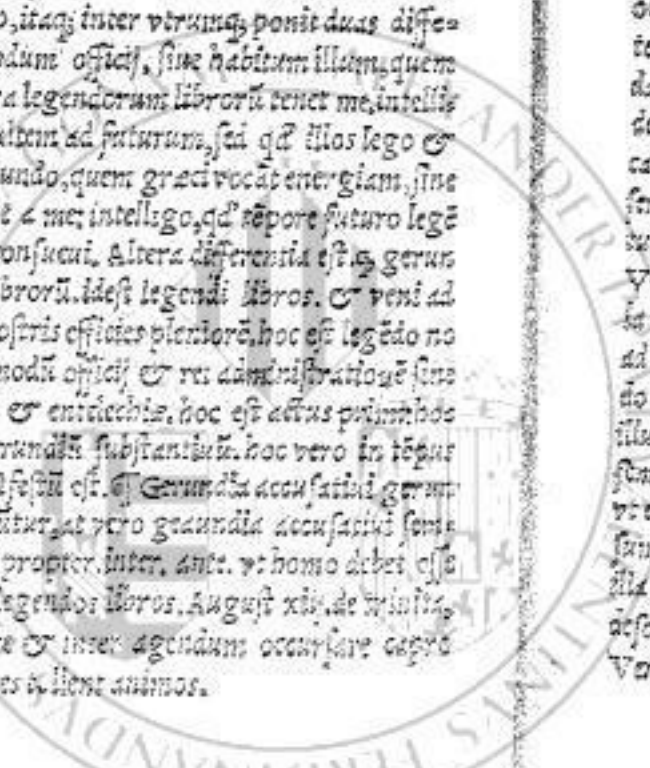 o, itaq; inter vtrunq; ponit duas diffe=
odum officij, siue habitum illum, quem
ra legendorum librorū tenet me, intelli=
ultem ad futurum, sed qđ illos lego &
undo, quem græci vocāt energiam, siue
ē a me: intelligo, qđ tēpore futuro legē
onsueui. Altera differentia est. q; gerun
brorū. idest legendi libros. & veni ad
ostris efficies pleniorē, hoc est legēdo no
modū officij & rei administrationē siue
& entelechiæ. hoc est actus primi: hoc
rundiū substantiuū. hoc vero in tēpus
ifestū est. Gerundia accusatiui gerun
utur, at vero geaundia accusatiui sem=
propter. inter. ante. vt homo debet esse
legendos libros. August xiij. de trinita,
re & inter agendum occursare
es tollent animos.
o
te
da
de
ca
fer
V
ad
do
illu
sem
vt e
sun
illa
Ver